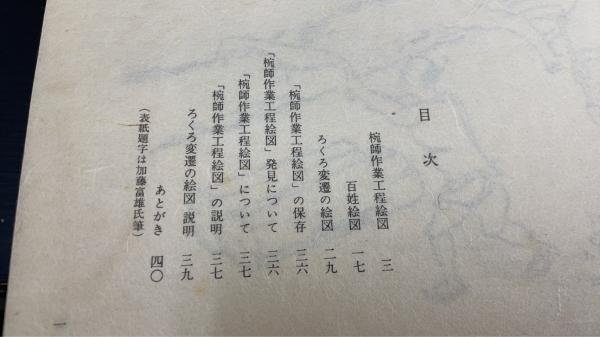 目次
椀師作業工程絵図 三
百姓絵図 一七
ろくろ変遷の絵図 二九
「椀師作業工程絵図」の保存 三六
「椀師作業工程絵図」発見について 三六
「椀師作業工程絵図」について 三七
「椀師作業工程絵図」の説明 三七
ろくろ変遷の絵図 説明 三九
あとがき 四〇
(表紙題字は加藤富雄氏筆)
一